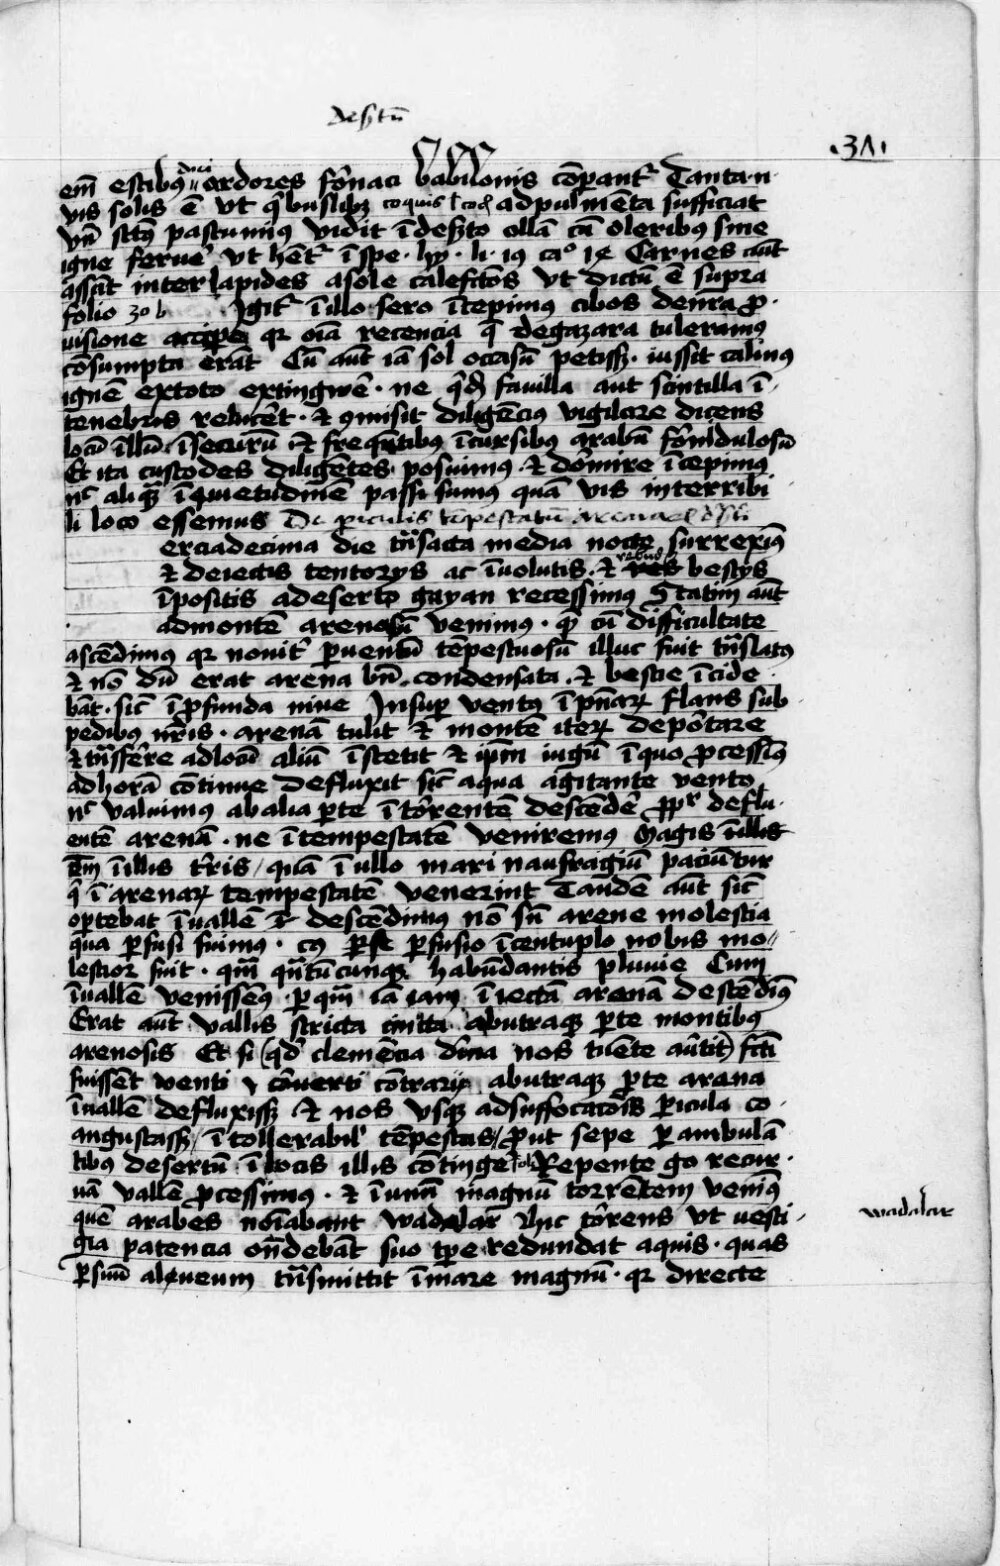 desertū
.31.
em̄ estibus dici ardores fōrnaci babilonis cōparantr Tanta·n·
vis solis ē vt q̄buslibz coquis l coq̄ ad pulmēta sufficiat
vn̄ sctūs pastumius vidit ī deserto ollā cū oleribus sine
igne ferue' vt hētr ī spe· hy· li· 19 ca° Carnes aūt
assāt inter lapides a sole calefctōs vt dictū ē supra
folio 30 b Igitr ī illo sero īcepimus cibos de nr̄a pro·
uisione accipe qr oīa recencia q̄ de gazara tuleramus
cōsumpta erāt Cū aūt iā sol occasū petissz· iussit calinus
ignē ex toto extingwē· ne q̄d fauilla aut scintilla ī·
tenebris relucēt· et 9misit diligēcius vigilare dicens
locū illū īsecurū et freqūtibus īcursibus arabū formidulosū
Et ita custodes diligētes posuimus· et dōrmire īcepimus
nc aliqz īquietudinē passi sumus quā vis in terribi
li loco essemus De piculis tēpestatū
erciadecima die trāsacta media nocte surreximus
et deiectis tentorys ac īuolutis· et rebus bestys
īpositis a deserto gayan recessimus Statim aūt
ad montē arenosū venimus· quē cū difficultate
ascēdimus qr nouitr p ventū tēpestuosū illuc fuit trāslatus
et nō dū erat arena bn̄ condensata· et bestie īcide·
bāt· sic̄ ī profunda niue Insup ventus ī pn̄ar flans sub
pedibus nr̄is· arenā tulit et montē iter depōrtare
et trāsferre ad locū aliū īstetit et ipm̄ iugū ī quo processimus
ad horā cōtinue defluxit sic̄ aqua agitante vento
nc valuimus ab alia pte ī tōrrentē descēde' pptr deflu·
entē arenā· ne ī tempestatē veniremus Magis ī illis
em̄ ī illis tr̄ris quā ī ullo mari naufragiū paciūtur
q̄ ī arenar tempestatē venerint Tandē aūt sic̄
oportebat ī vallē descēdimus nō sn̄ arene molestia
qua pfusi fuimus· cuius pfusio ī centuplo nobis mo
lestior fuit· qm̄ qn̄tūcunqz habūdantis pluuie Cum
ī vallē venissēus p qm̄ iā iam īiectā arenā descēdimus
Erat aūt vallis stricta cincta ab utraqz pte montibus
arenosis Et si (qd clemēcia diuina nos tuēte aūtit) fcti
fuissēt venti et cōuerti cōtrarij ab utraqz pte arena
ī vallē defluxissz et nos vsqz ad suffocacōis picula co·
angustassz ītollerabil' tēpestas prout sepe p ambulā
tibus desertū ī locis illis cōtinge Repente go recur·
uā vallē processimus· et ī unū magnū torrētem venimus
quē arabes noīabant wadalar Hic tōrens vt uesti·
gia patencia on̄debāt suo tpe redundat aquis· quas
p suū alveum trāsmittit ī mare magnū· qr directe
wadalar